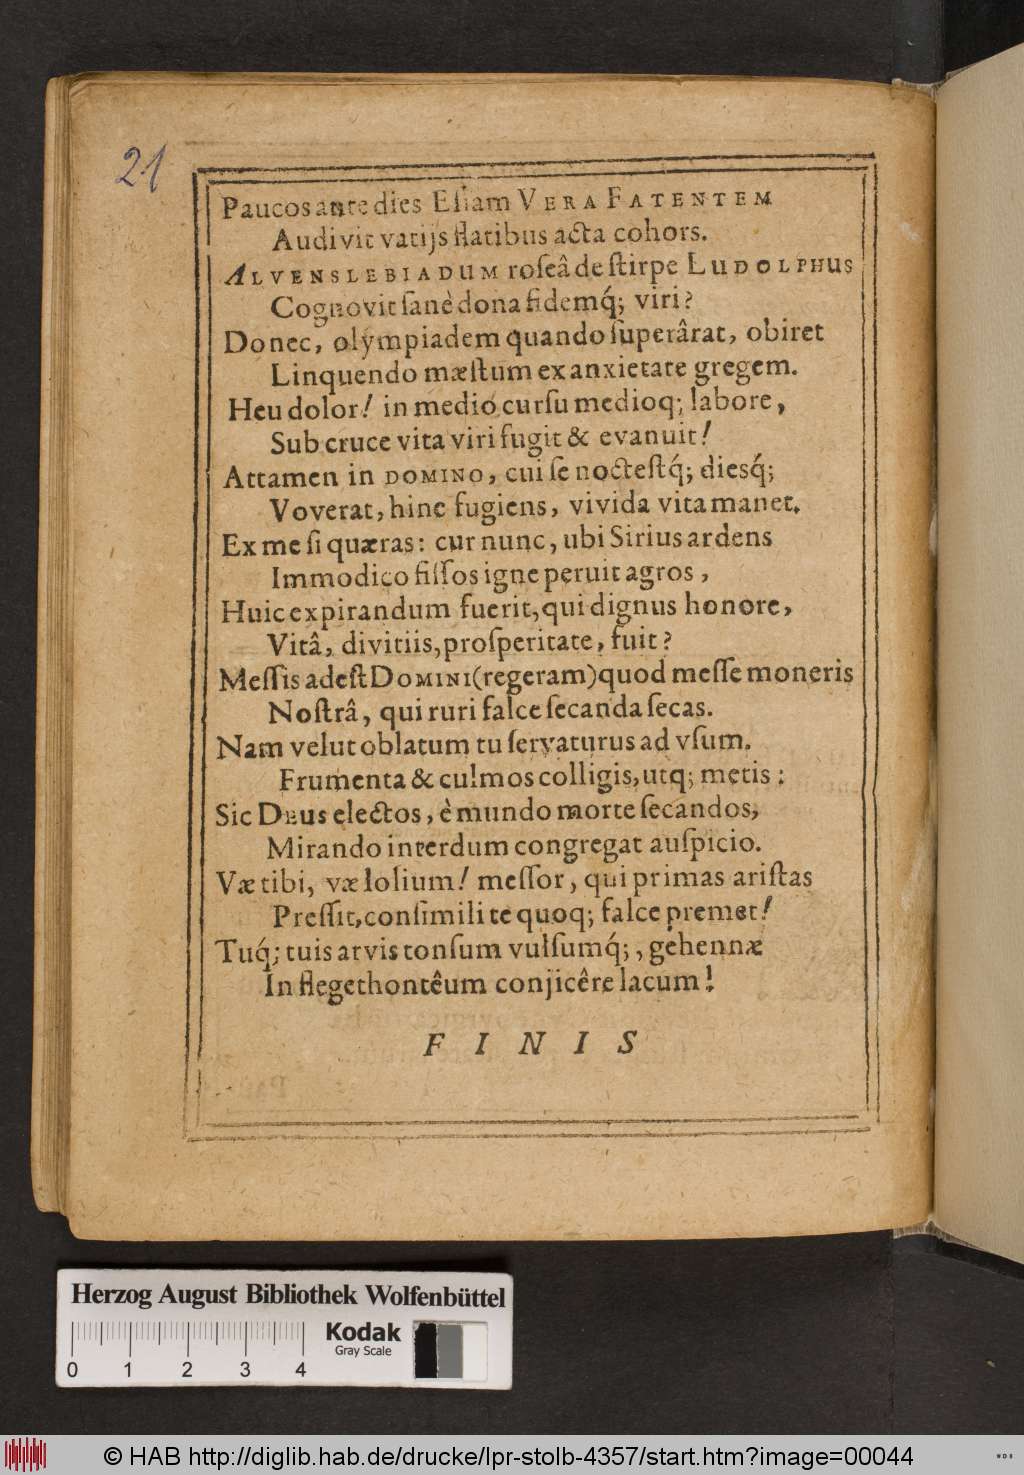 21
Paucos ante dies Eſiam VERA FATENTEM
Audivit vatijs flatibus acta cohors.
ALVENSLEBIADUM roſeâ de ſtirpe LUDOLPHUS
Cognovit ſanè dona fidemq́; viri?
Donec, olympiadem quando ſuperârat, obiret
Linquendo mæſtum ex anxietate gregem.
Heu dolor! in medio curſu medioq; labore,
Sub cruce vita viri fugit & evanuit!
Attamen in DOMINO, cui ſe nocteſtq́; diesq́;
Voverat, hinc fugiens, vivida vita manet.
Ex me ſi quæras: cur nunc, ubi Sirius ardens
Immodico fiſſos igne peruit agros,
Huic expirandum fuerit, qui dignus honore,
Vitâ, divitiis, proſperitate, fuit?
Meſſis adeſt DOMINI (regeram) quod meſſe moneris
Noſtrâ, qui ruri falce ſecanda ſecas.
Nam velut oblatum tu ſervaturus ad vſum.
Frumenta & culmos colligis, utq; metis:
Sic DEUS electos, è mundo morte ſecandos,
Mirando interdum congregat auſpicio.
Væ tibi, væ lolium! meſſor, qui primas ariſtas
Preſſit, conſimili te quoq; falce premet!
Tuq́; tuis arvis tonſum vulſumq́;, gehennæ
In flegethontêum conjicêre lacum!
F I N I S
Herzog August Bibliothek Wolfenbüttel
Kodak
Gray Scale
0 1 2 3 4
© HAB http://diglib.hab.de/drucke/lpr-stolb-4357/start.htm?image=00044